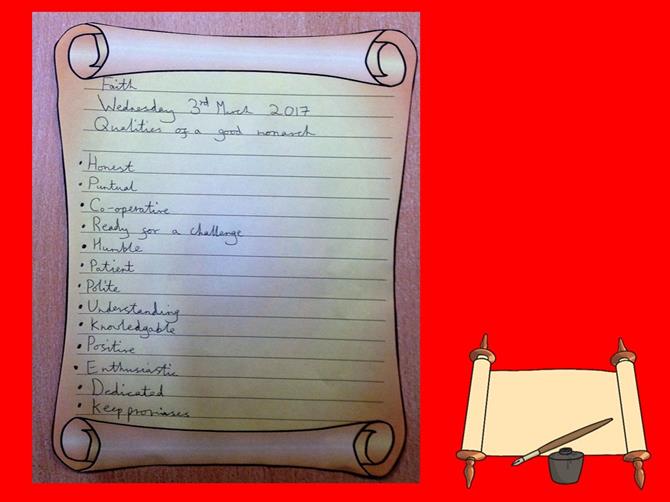 Faith
Wednesday 3rd March 2017
Qualities of a good monarch
• Honest
• Puntual
• Co-operative
• Ready for a challenge
• Humble
• Patient
• Polite
• Understanding
• Knowledgable
• Positive
• Enthusiastic
• Dedicated
• Keep promises